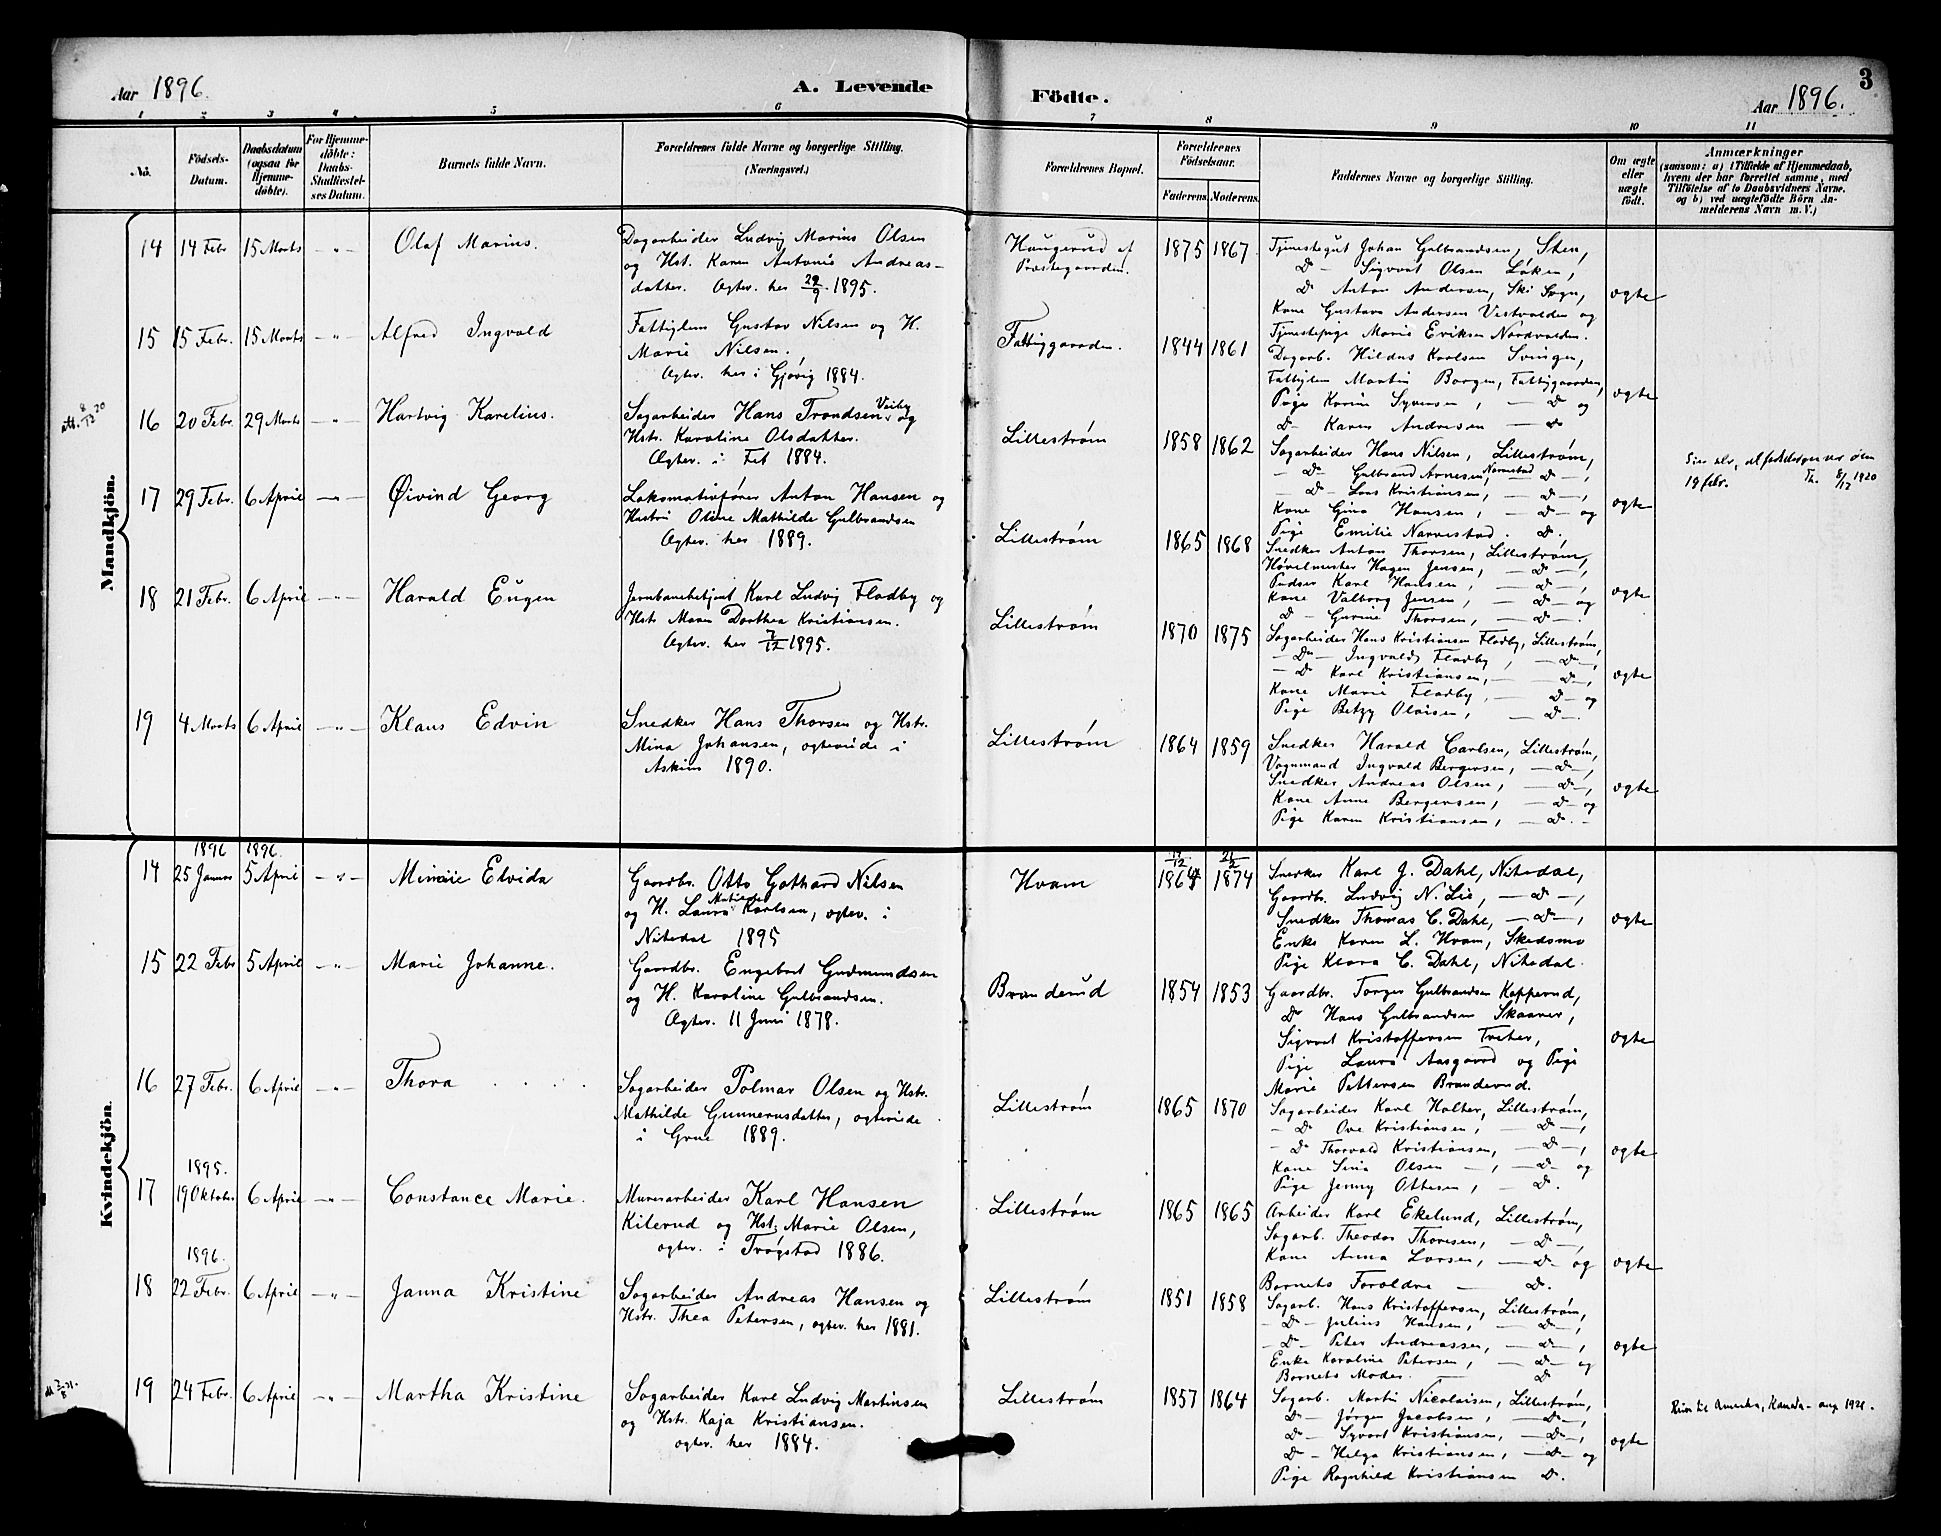 Aar 1896.
A. Levende
Födte.
Aar 1896.
3
1 2 3 4 5 6 7 8 9 10 11
No.
Födsels-
Datum.
Daabsdatum
(ogsaa for
Hjemme-
döbte).
For Hjemme-
döbte:
Daabs-
Stadfæstel-
ses Datum.
Barnets fulde Navn.
Forældrenes fulde Navne og borgerlige Stilling.
(Næringsvei.)
Forældrenes Bopæl.
Forældrenes
Födselsaar.
Faderens. Moderens.
Faddernes Navne og borgerlige Stilling.
Om ægte
eller
uægte
födt.
Anmærkninger
(saasom: a) i Tilfælde af Hjemmedaab,
hvem der har forrettet samme, med
Tilföielse af to Daabsvidners Navne.
og b) ved uægtefödte Börn An-
melderens Navn m. V.)
Mandkjön.
14 14 Febr 15 Marts – " – Olaf Marius.
Dagarbeider Ludvig Marius Olsen
og Hst. Karen Antonie Andreas-
datter. Ægtev. her 29/9 1895.
Haugerud af
Præstegaarden.
1875 1867
Tjenestegut Johan Gulbrandsen, Sten,
D – Sigvart Olsen Løken,
D Anton Andersen, Ski Sogn,
Kone Gustava Andersen Vestvolden og
Tjenestepige Marie Eriksen Nordvolden.
ægte
15 15 Febr. 15 Marts – " – Alfred Ingvald
Fattiglem Gustav Nilsen og H.
Marie Nilsen.
Ægtev. her i Gjøvig 1884.
Fattiggaarden.
1844 1861
Dagarb. Hildus Karlsen Svingen,
Fattiglem Martin Borgen, Fattiggaarden,
Pige Karin Syversen, – D – og
D – Karen Andresen – D
ægte
att. 8/12 20
16 20 Febr. 29 Marts – " – Hartvig Karelius.
Sagarbeider Hans Trondsen Veiby og
Hstr. Karoline Olsdatter.
Ægtev. i Fet 1884.
Lillestrøm
1858 1862
Sagarbeider Hans Nilsen, Lillestrøm,
– D – Gulbrand Arnesen Narvestad – D –,
– D – Lars Kristiansen, – D –,
Kone Gina Hansen, – D – og
Pige Emilie Narvestad. D.
ægte
19 febr. 8/12 1920
17 29 Febr. 6 April – " – Øivind Georg
Lokomotivfører Anton Hansen og
Hustru Oline Mathilde Gulbrandsen
Ægtev. her 1889.
Lillestrøm
1865 1868
Snedker Anton Thorsen, Lillestrøm,
Høvelmester Hagen Jensen, – D –,
Pudser Karl Hansen, – D –,
Kone Valborg Jensen, – D – og
D – Gurine Thorsen, – D –.
ægte
18 21 Febr. 6 April – " – Harald Eugen
Jernbanebetjent Karl Ludvig Fladby og
Hstr Maren Dorthea Kristiansen.
Ægtev. her 7/12 1895.
Lillestrøm
1870 1875
Sagarbeider Hans Kristiansen Fladby, Lillestrøm,
– D – Ingvald Fladby, – D –,
– D Karl Kristiansen, – D –,
Kone Marie Fladby, – D – og
Pige Betzy Olaisen, – D –.
ægte
19 4 Marts 6 April – " – Klaus Edvin
Snedker Hans Thorsen og Hstr.
Mina Johansen, ægteviede i
Askim 1890.
Lillestrøm
1864 1859
Snedker Harald Carlsen, Lillestrøm,
Vognmand Ingvald Bergersen, – D –,
Snedker Andreas Olsen, – D –,
Kone Anne Bergersen, – D – og
Pige Karen Kristiansen, – D. –
ægte
Kvindekjön.
1896 1896.
14 25 Januar 5 April – " – Minnie Elvida
Gaardbr. Otto Gothard Nilsen
og H. Laura Matilde Karlsen, ægtev. i
Nitedal 1895
Hvam
1864 21/2 1874
Snedker Karl J. Dahl, Nitedal,
Gaardbr. Ludvig N. Lie, – D –,
Snedker Thomas C. Dahl, – D –,
Enke Karen L. Hvam, Skedsmo
Pige Klara C. Dahl, Nitedal.
ægte
15 22 Febr 5 April – " – Marie Johanne.
Gaardbr. Engebret Gudmundsen
og H. Karoline Gulbrandsen.
Ægtev. 11 Juni 1878.
Branderud
1854 1853
Gaardbr. Torger Gulbrandsen Kopperud,
D Hans Gulbrandsen Skaarer,
Sigvart Kristoffersen Freter,
Pige Laura Aasgaard og Pige
Marie Pettersen Branderud.
ægte
16 27 Febr. 6 April – " – Thora
Sagarbeider Polmar Olsen og Hstr.
Mathilde Gunnerusdatter, ægteviede
i Grue 1889.
Lillestrøm
1865 1870
Sagarbeider Karl Holter, Lillestrøm,
– D Ove Kristiansen, – D –,
– D Thorvald Kristiansen, – D –,
Kone Sina Olsen –, – D – og
Pige Jenny Ottesen, – D.
ægte
1895.
17 19 Oktober 6 April – " – Constance Marie.
Murerarbeider Karl Hansen
Kilerud og Hst. Marie Olsen,
ægtev. i Trøgstad 1886.
Lillestrøm
1865 1865
Arbeider Karl Ekelund, Lillestrøm,
Sagarb. Theodor Thoresen, – D –,
Kone Anna Larsen, – D – og
Barnets Forældre – D.
ægte
1896.
18 22 Febr. 6 April – " – Janna Kristine
Sagarbeider Andreas Hansen og
Hstr. Thea Petersen, ægtev. her 1881.
Lillestrøm
1851 1858
Sagarb. Hans Kristoffersen, Lillestrøm,
– D – Julius Hansen, – D –,
– D – Peter Andreassen, – D –,
Enke Karoline Petersen, – D – og
Barnets Moder. – D
ægte
19 24 Febr. 6 April – " – Martha Kristine
Sagarbeider Karl Ludvig Martinsen
og Hstr. Kaja Kristiansen.
ægtev. her 1884.
Lillestrøm
1857 1864
Sagarb. Martin Nicolaisen, Lillestrøm,
D – Jørgen Jacobsen, – D –,
D – Syvert Kristiansen, – D –,
D – Helga Kristiansen, – D – og
Pige Ragnhild Kristiansen D.
ægte
Reise til Amerika, Kanada – aug 1921.